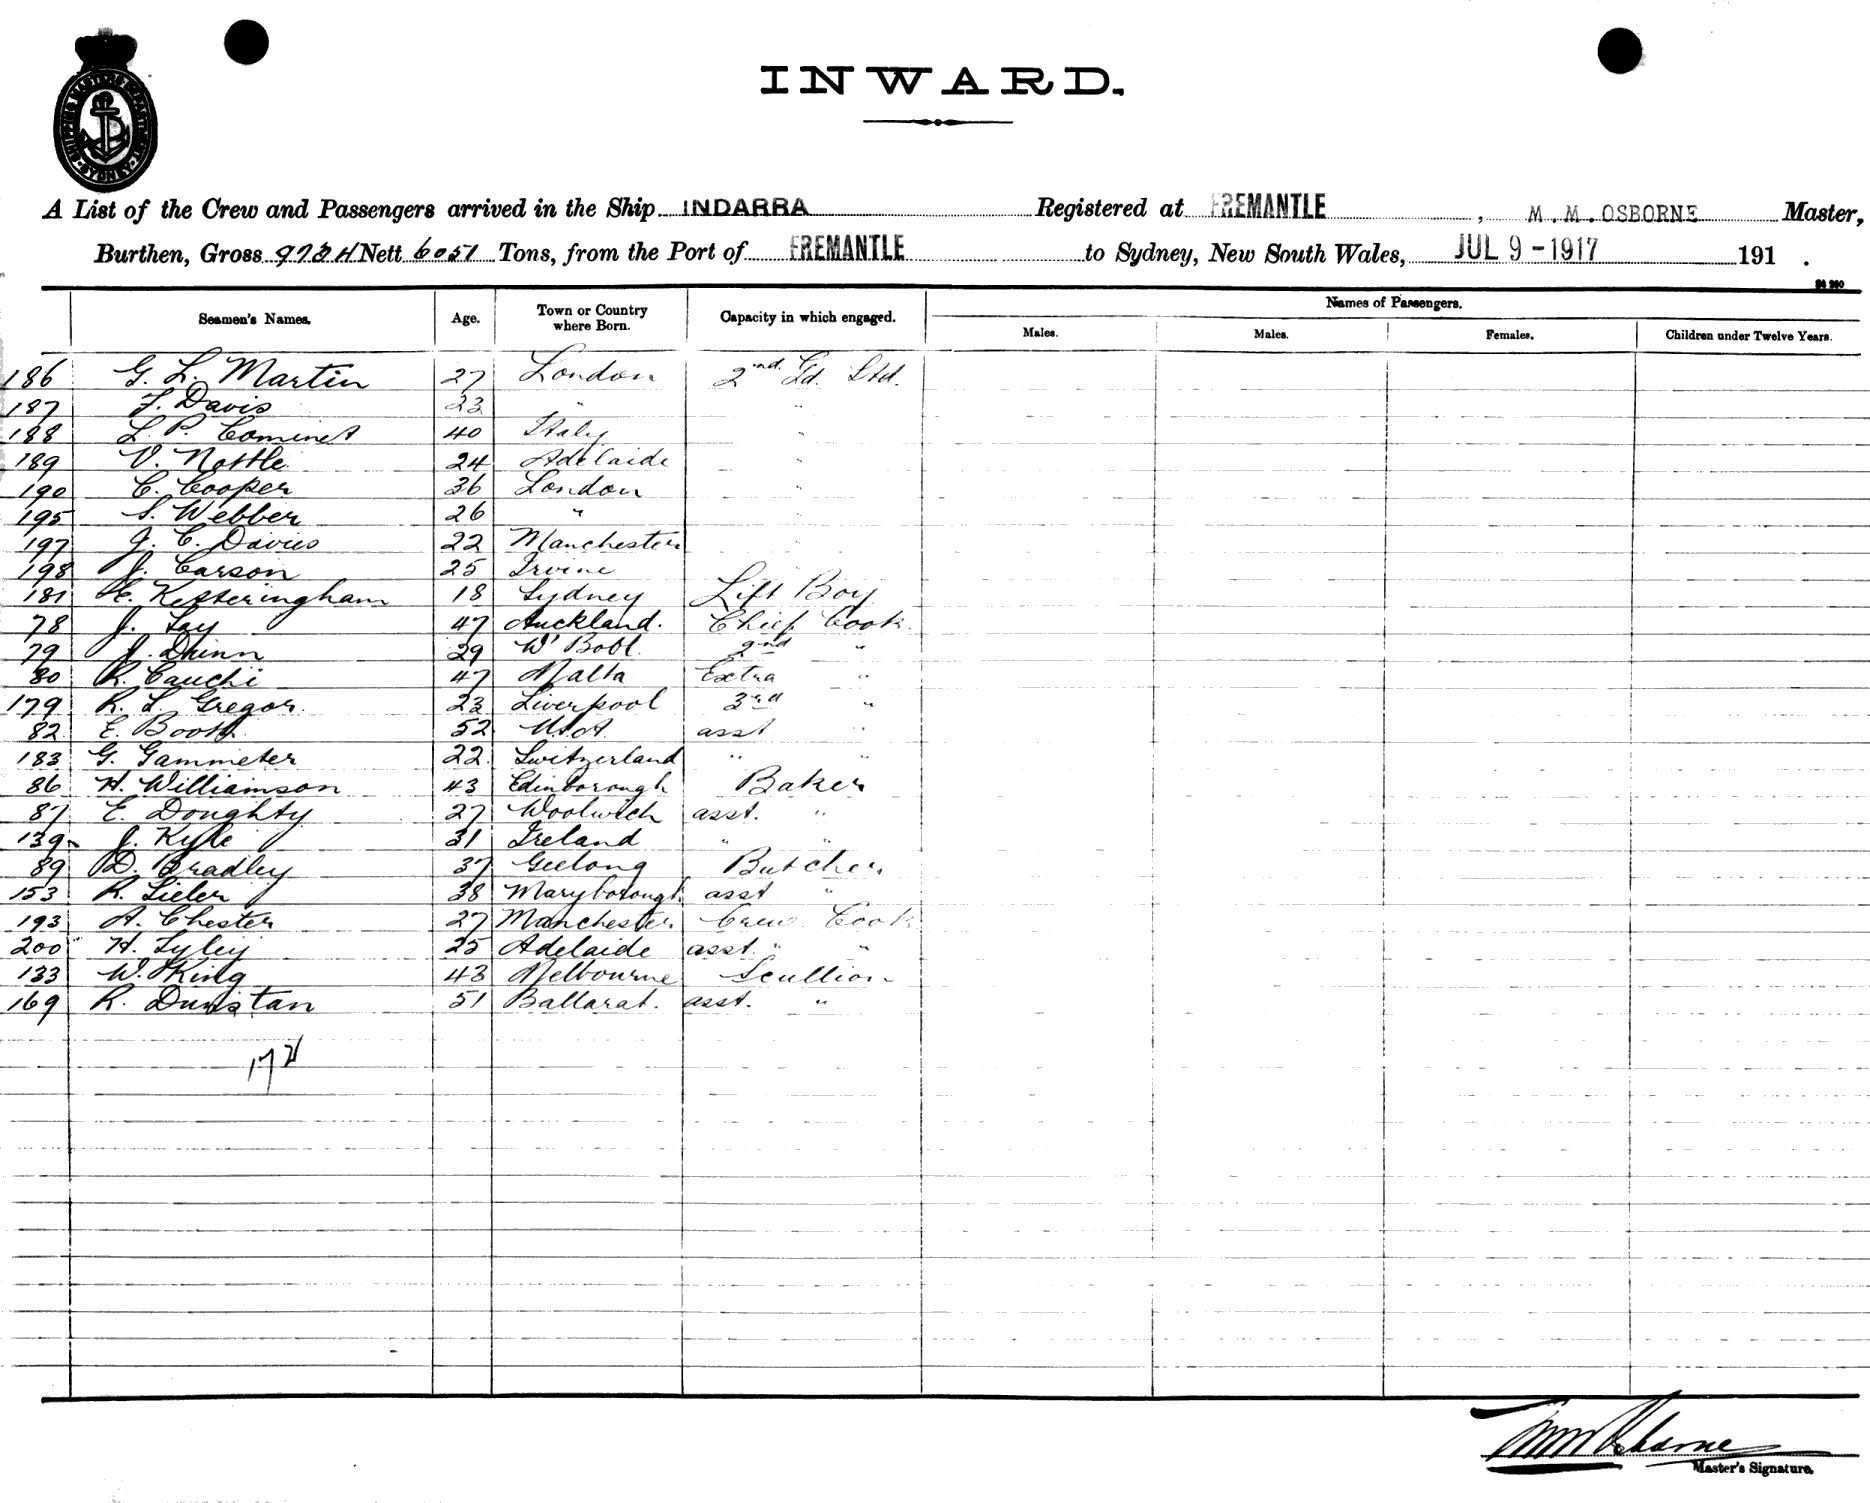 SHIPPING MASTERS DEPARTMENT SYDNEY
INWARD.
A List of the Crew and Passengers arrived in the Ship INDARRA Registered at FREMANTLE, M.M.OSBORNE Master,
Burthen, Gross Nett 6051 Tons, from the Port of FREMANTLE to Sydney, New South Wales, JUL 9-1917 191 .
Names of Passengers.
Seamen's Names. Age. Town or Country where Born. Capacity in which engaged. Males. Males. Females. Children under Twelve Years.
186 G. L. Martin 27 London 2nd. Gd. Std.
187 F. Davis 23 " "
188 L. P. Cominet 40 Italy "
189 V. Nottle 24 Adelaide "
190 C. Cooper 36 London "
195 S. Webber 26 "
197 J. C. Davies 22 Manchester
198 J. Carson 25 Irvine
181 Kesteringham 18 Sydney Lift Boy
78 J. Lay 47 Auckland. Chief Cook
79 J. Dhinn 29 2nd "
80 R. Cauchi 47 Malta Extra "
179 R. L. Gregor. 23 Liverpool 3rd "
82 E. Booth 52 asst "
183 G. Gammeter 22 Switzerland " "
86 H. Williamson 43 Edinborough Baker
87 E. Doughty 27 Woolwich asst. "
139 J. Kyle 31 Ireland " "
89 D. Bradley 37 Geelong Butcher
153 R. 38 Maryborough asst "
193 A. Chester 27 Manchester Crew Cook
200 H. Lyley 25 Adelaide asst. " "
133 W. King 43 Melbourne Scullion
169 R. Dunstan 51 Ballarat. asst. "
Master's Signature.